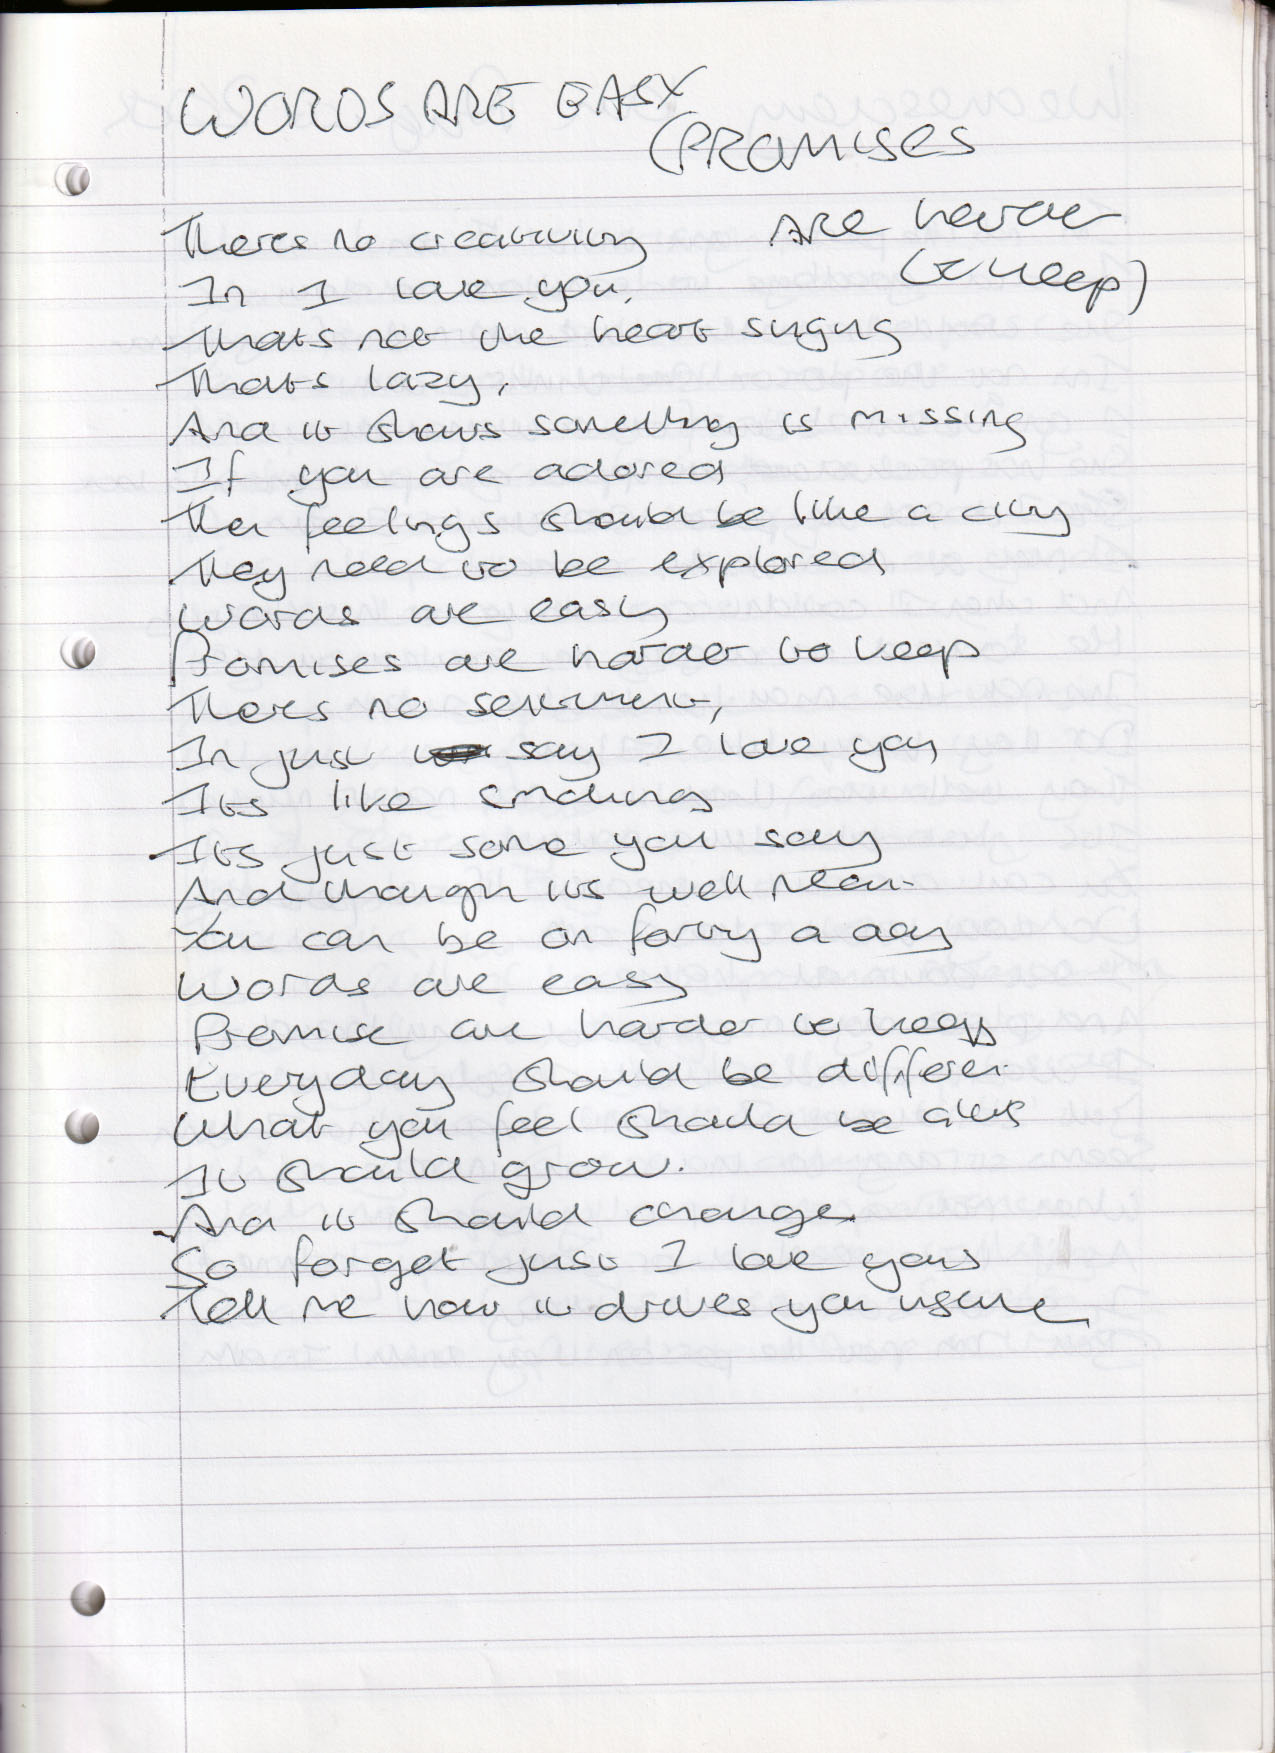 WORDS ARE EASY
(PROMISES
ARE harder
to keep)
Theres no creativity
In I love you.
Thats not the heart singing
Thats lazy.
And it shows something is missing
If you are adored
Then feelings should be like a city
They need to be explored
Words are easy
Promises are harder to keep
Theres no sentiment,
In just say I love you
Its like smoking
Its just some you say
And though its well mean
You can be on forty a day
Words are easy
Promise are harder to keep
Everyday should be differen
What you feel should be alive
It should grow.
And it should change.
So forget just I love you
Tell me how it drives you insane